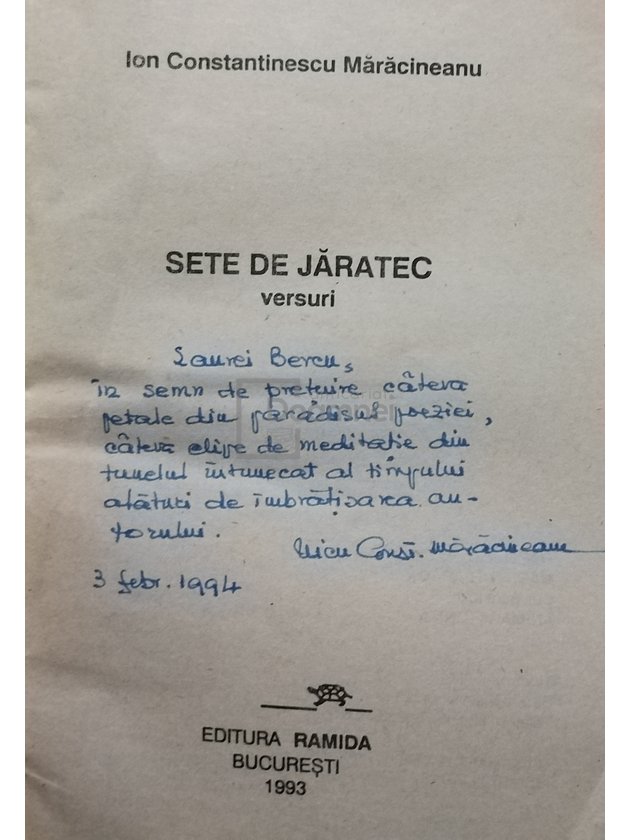 Ion Constantinescu Mărăcineanu
SETE DE JĂRATEC
versuri
Laurei Bercu,
în semn de prețuire câteva
petale din paradisul poeziei,
câteva clipe de meditație din
tunelul întunecat al timpului
alături de îmbrățișarea au-
torului.
Const. Mărăcineanu
3 febr. 1994
EDITURA RAMIDA
BUCUREȘTI
1993